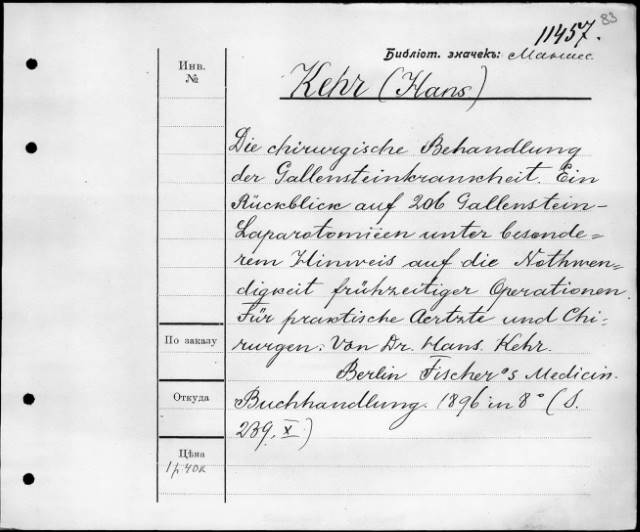 83
11457.
Библіот. значекъ:
Инв.
№
Kehr (Hans)
Die chirurgische Behandlung
der Gallensteinkrankheit. Ein
Rückblick auf 206 Gallenstein-
Laparotomieen unter besonde=
rem Hinweis auf die Nothwen=
digkeit frühzeitiger Operationen.
Für praktische Aertzte und Chi-
rurgen. Von Dr. Hans Kehr.
По заказу
Berlin Fischer's Medicin.
Откуда
Buchhandlung. 1896 in 8° (S.
239. X)
Цѣна
1 р. 40 к